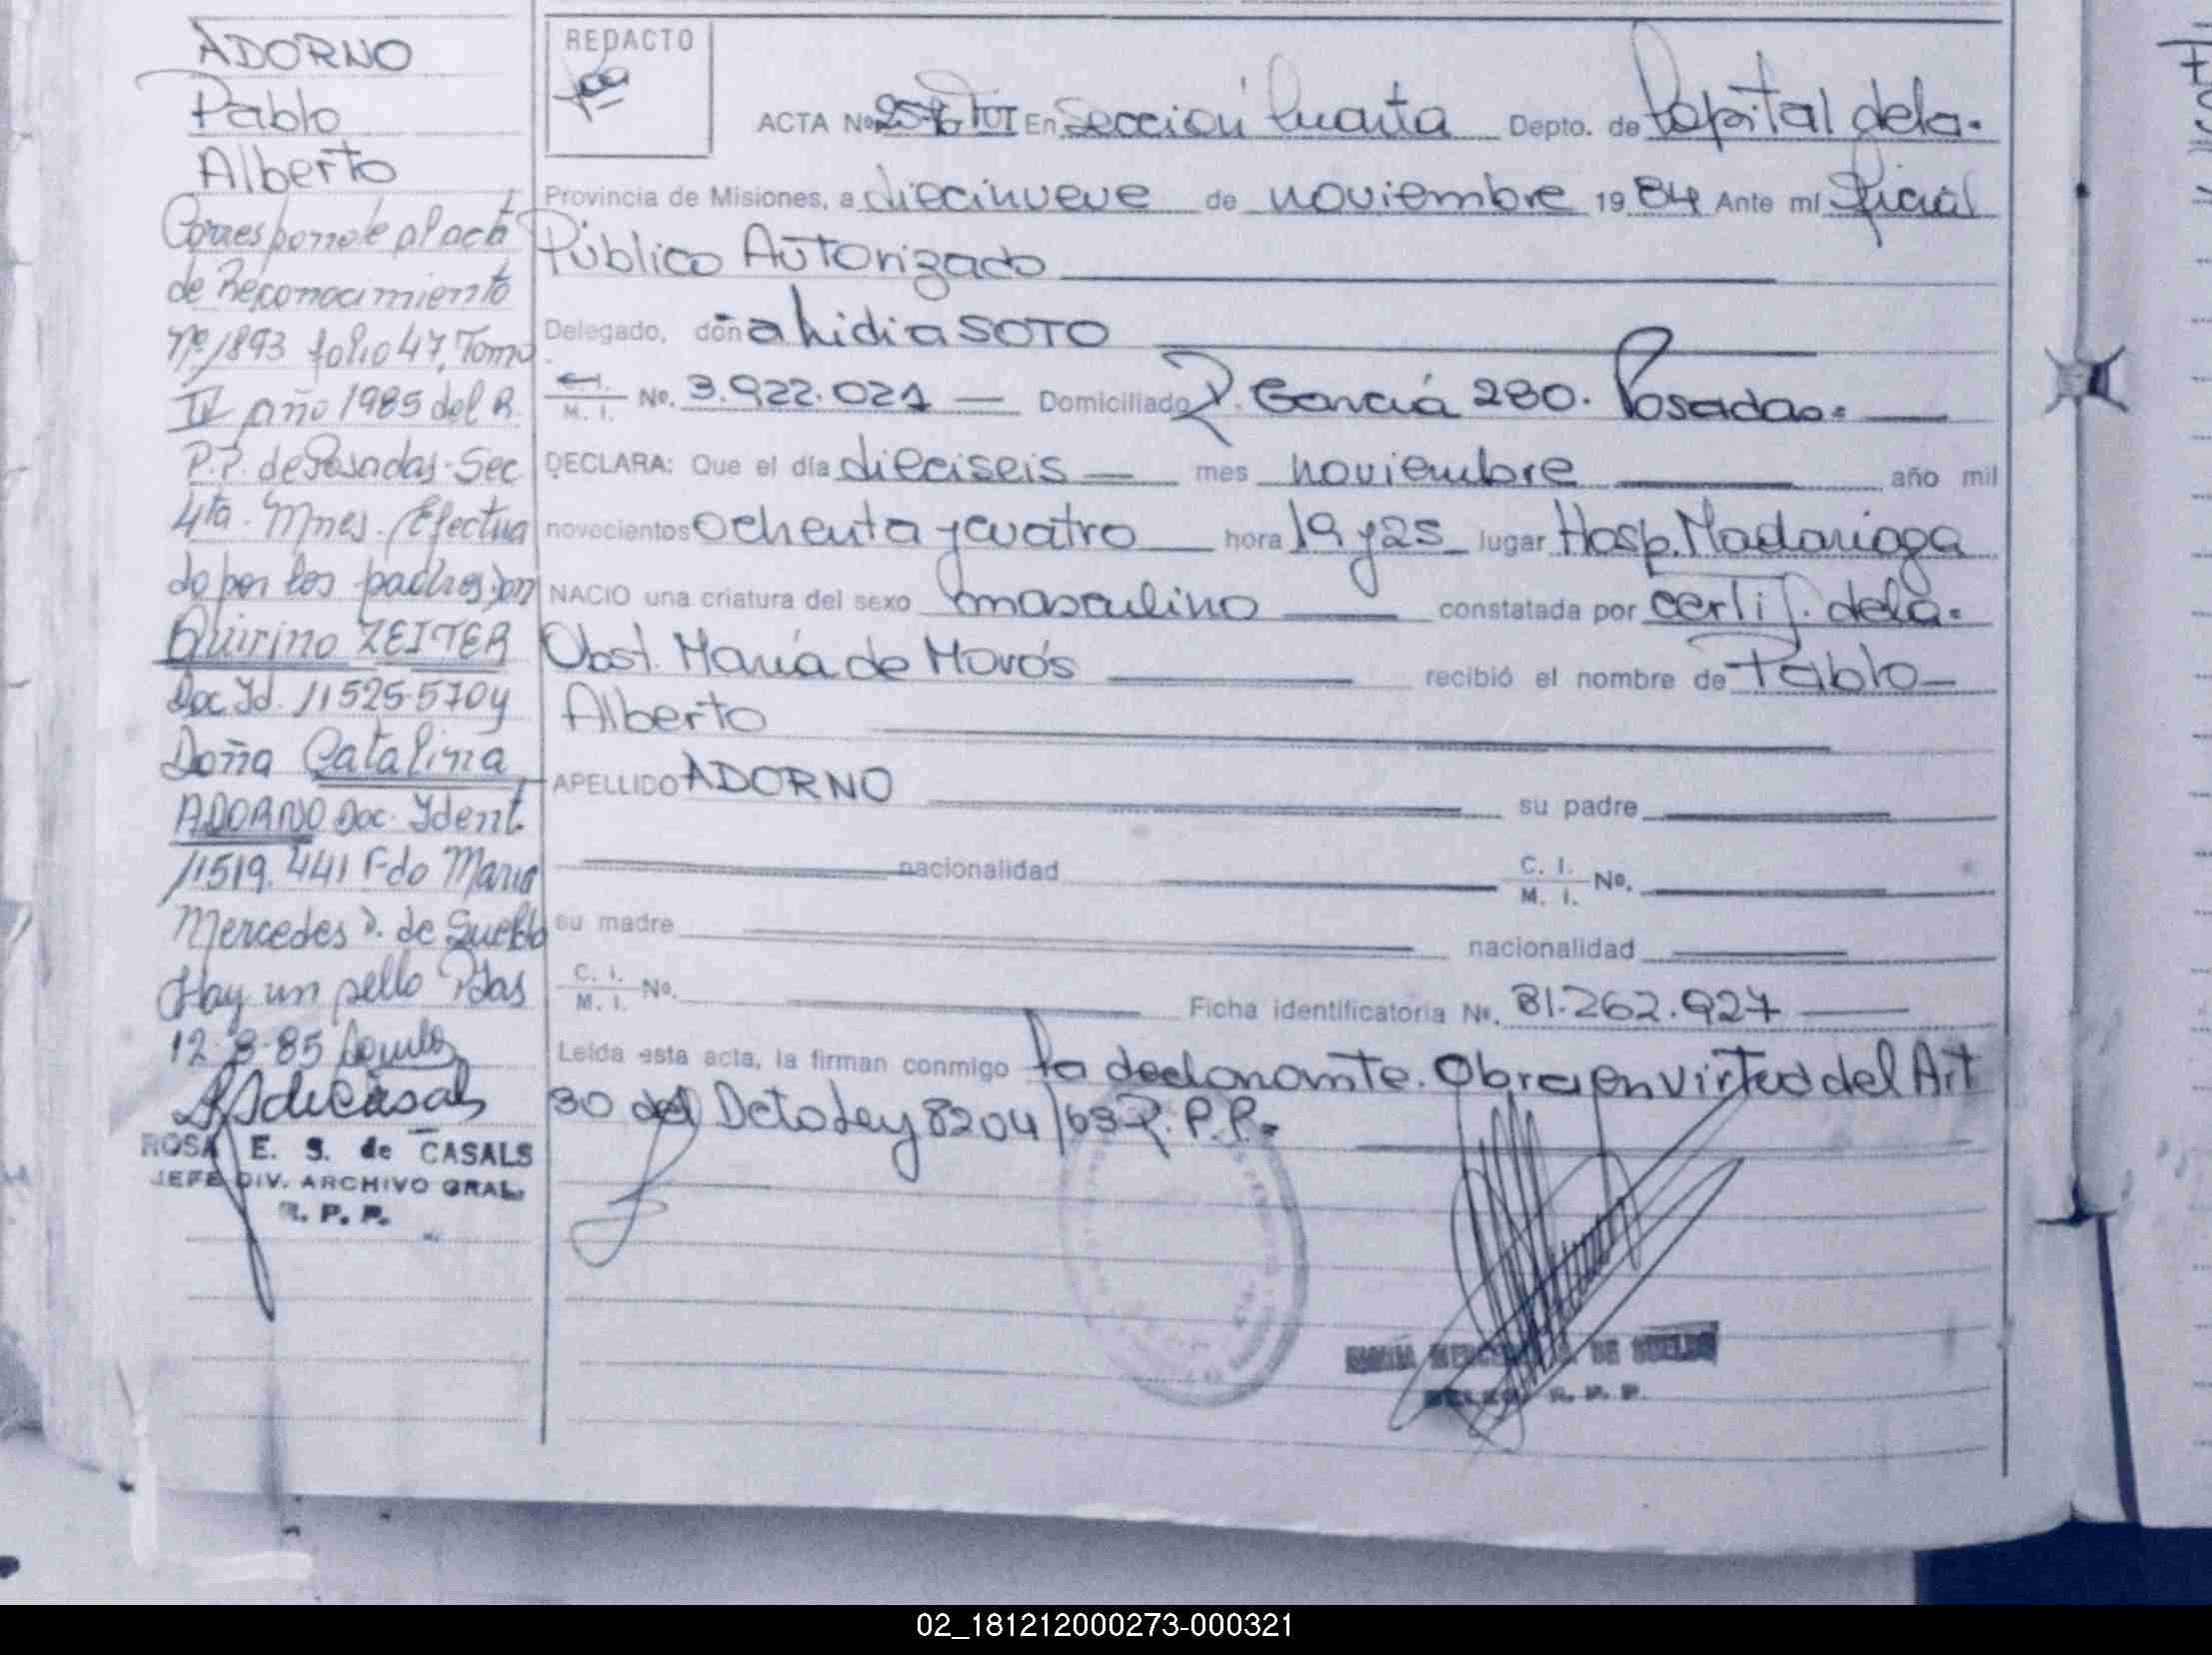 ADORNO
Pablo
Alberto
Corresponde al acta
de Reconocimiento
Nº 1893 folio 47, Tomo
IV año 1985 del R.
P.P. de Posadas. Sec
4ta. Mnes. Efectua
do por los padres, don
Quirino ZEITER
Doc Id. 11525.570 y
Doña Catalina
ADORNO Doc. Ident.
11519.441 Fdo Maria
Mercedes D. de Sueldo
Hay un sello Pdas
12-8-85
ROSA E. S. de CASALS
JEFE DIV. ARCHIVO GRAL.
R. P. P.
REDACTO
ACTA Nº TOI En Sección Cuarta Depto. de Capital dela.
Provincia de Misiones, a diecinueve de noviembre 1984 Ante mí Oficial
Público Autorizado
Delegado, doña Lidia SOTO
M. I. No. 3.922.021 Domiciliado García 280. Posadas.
DECLARA: Que el día dieciseis mes noviembre año mil
novecientos ochenta y cuatro hora 19 y 25 lugar Hosp. Madariaga
NACIO una criatura del sexo masculino constatada por certif. dela.
Obst. María de Hovós recibió el nombre de Pablo
Alberto
APELLIDO ADORNO su padre
nacionalidad C. I. M. I. Nº.
su madre nacionalidad
C. I. M. I. Nº. Ficha identificatoria Nº. 31.262.927
Leída esta acta, la firman conmigo la declarante. Obra en virtud del Art
30 del Dcto Ley 8204/63 R.P.P.
MARIA MERCEDES D. DE SUELDO
R. P. P.
02_181212000273-000321